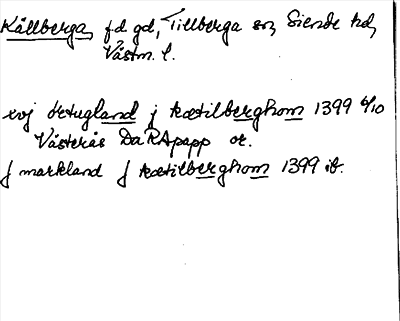 Kållberga, f.d gd, Tillberga sn, Siende hd,
Västm. l.
xvj örtugland j kætilberghom 1399 6/10
Västerås DaRApapp or.
j markland j kætilberghom 1399 ib.